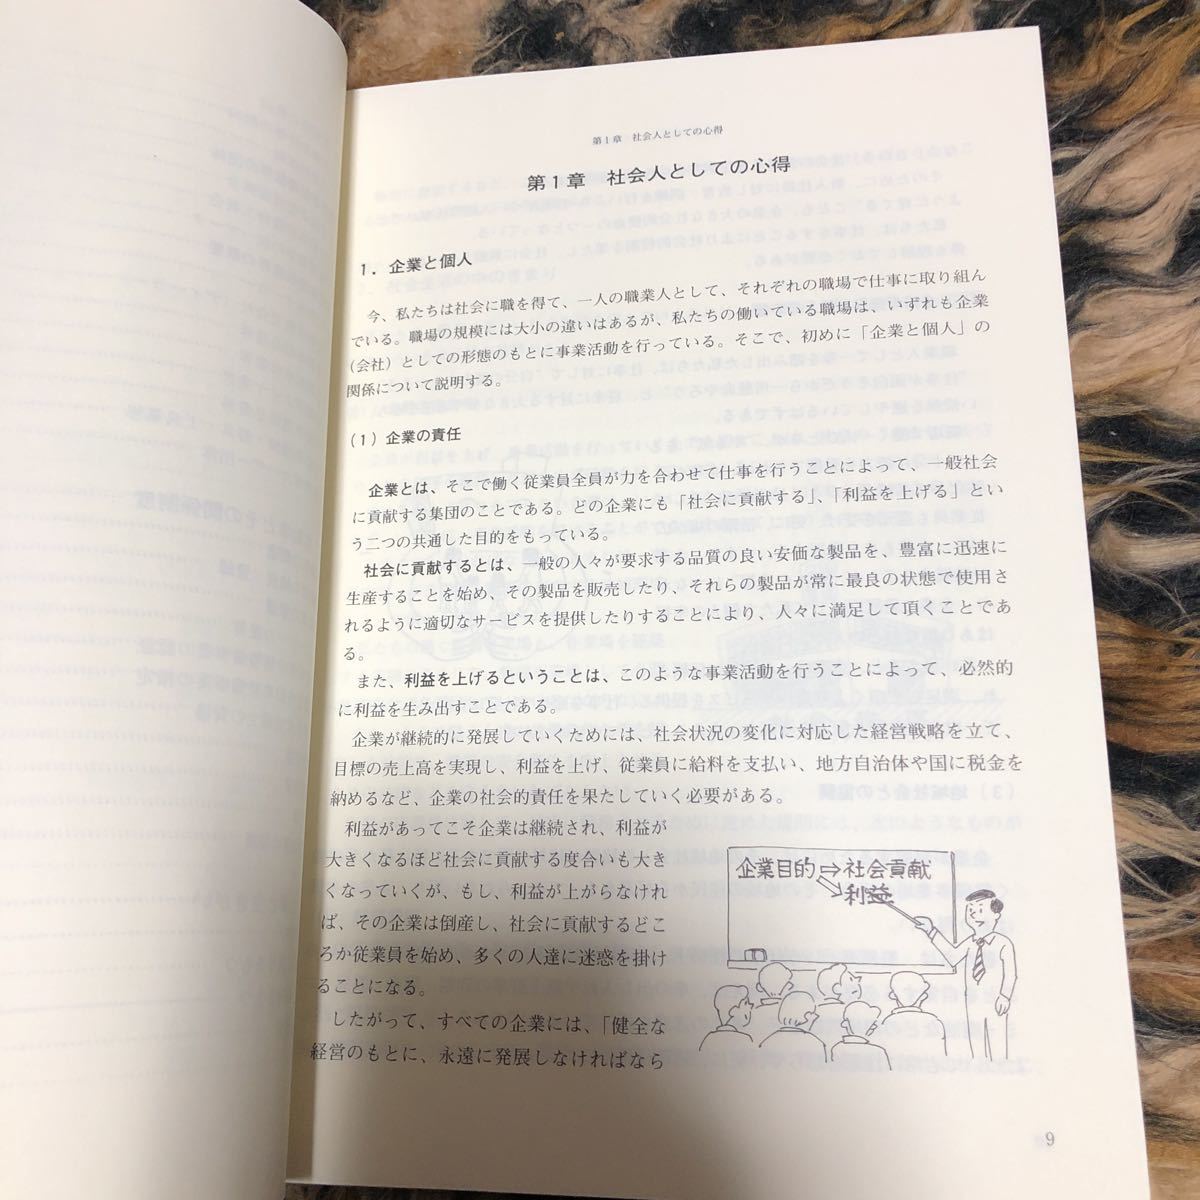 第1章 社会人としての心得
第1章 社会人としての心得
1. 企業と個人
今、私たちは社会に職を得て、一人の職業人として、それぞれの職場で仕事に取り組ん
でいる。職場の規模には大小の違いはあるが、私たちの働いている職場は、いずれも企業
(会社)としての形態のもとに事業活動を行っている。そこで、初めに「企業と個人」の
関係について説明する。
(1)企業の責任
企業とは、そこで働く従業員全員が力を合わせて仕事を行うことによって、一般社会
に貢献する集団のことである。どの企業にも「社会に貢献する」、「利益を上げる」とい
う二つの共通した目的をもっている。
社会に貢献するとは、一般の人々が要求する品質の良い安価な製品を、豊富に迅速に
生産することを始め、その製品を販売したり、それらの製品が常に最良の状態で使用さ
れるように適切なサービスを提供したりすることにより、人々に満足して頂くことであ
る。
また、利益を上げるということは、このような事業活動を行うことによって、必然的
に利益を生み出すことである。
企業が継続的に発展していくためには、社会状況の変化に対応した経営戦略を立て、
目標の売上高を実現し、利益を上げ、従業員に給料を支払い、地方自治体や国に税金を
納めるなど、企業の社会的責任を果たしていく必要がある。
利益があってこそ企業は継続され、利益が
大きくなるほど社会に貢献する度合いも大き
くなっていくが、もし、利益が上がらなけれ
ば、その企業は倒産し、社会に貢献するどこ
ろか従業員を始め、多くの人達に迷惑を掛け
ることになる。
したがって、すべての企業には、「健全な
経営のもとに、永遠に発展しなければなら
企業目的⇒社会貢献
利益
9